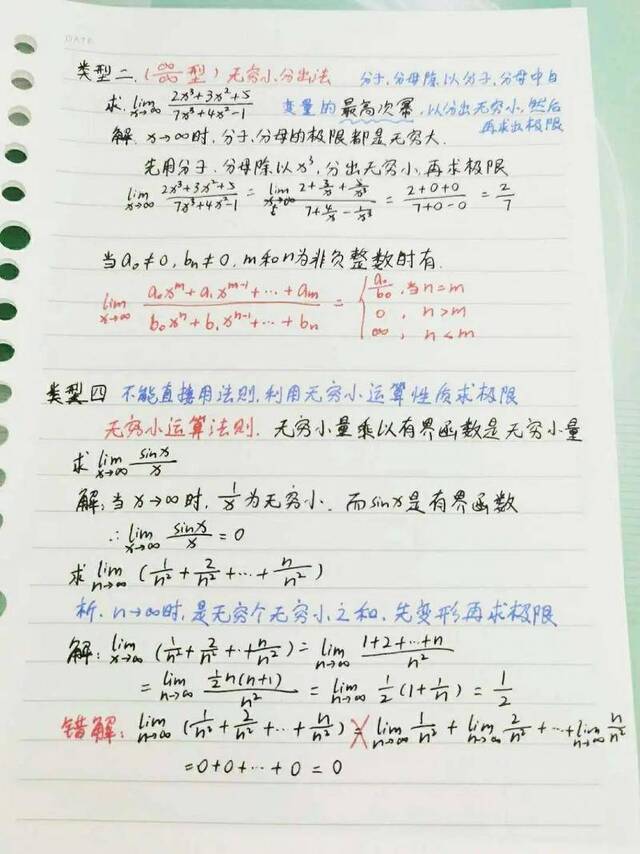 DATE
类型二.(∞/∞型) 无穷小分出法 分子,分母除以分子,分母中自
求 lim x→∞ (2x³+3x²+5)/(7x³+4x²-1) 变量的最高次幂,以分出无穷小,然后
再求出极限
解. x→∞时,分子,分母的极限都是无穷大.
先用分子.分母除以x³,分出无穷小,再求极限
lim x→∞ (2x³+3x²+5)/(7x³+4x²-1) = lim x→∞ (2+3/x+5/x³)/(7+4/x-1/x³) = (2+0+0)/(7+0-0) = 2/7
当a₀≠0,bₙ≠0,m和n为非负整数时有.
lim x→∞ (a₀xᵐ+a₁xᵐ⁻¹+…+aₘ)/(b₀xⁿ+b₁xⁿ⁻¹+…+bₙ) = { a₀/b₀,当n=m
0 , n>m
∞ , n<m
类型四 不能直接用法则,利用无穷小运算性质求极限
无穷小运算法则. 无穷小量乘以有界函数是无穷小量
求 lim x→∞ sinx/x
解:当x→∞时, 1/x为无穷小. 而sinx是有界函数
∴lim x→∞ sinx/x = 0
求 lim n→∞ (1/n²+2/n²+…+n/n²)
析. n→∞时,是无穷个无穷小之和.先变形再求极限
解: lim x→∞ (1/n²+2/n²+··+n/n²) = lim n→∞ (1+2+…+n)/n²
= lim n→∞ (½n(n+1))/n² = lim n→∞ ½(1+1/n) = ½
错解: lim n→∞ (1/n²+2/n²+…+n/n²) = lim n→∞ 1/n² + lim n→∞ 2/n² + … + lim n→∞ n/n²
=0+0+…+0=0